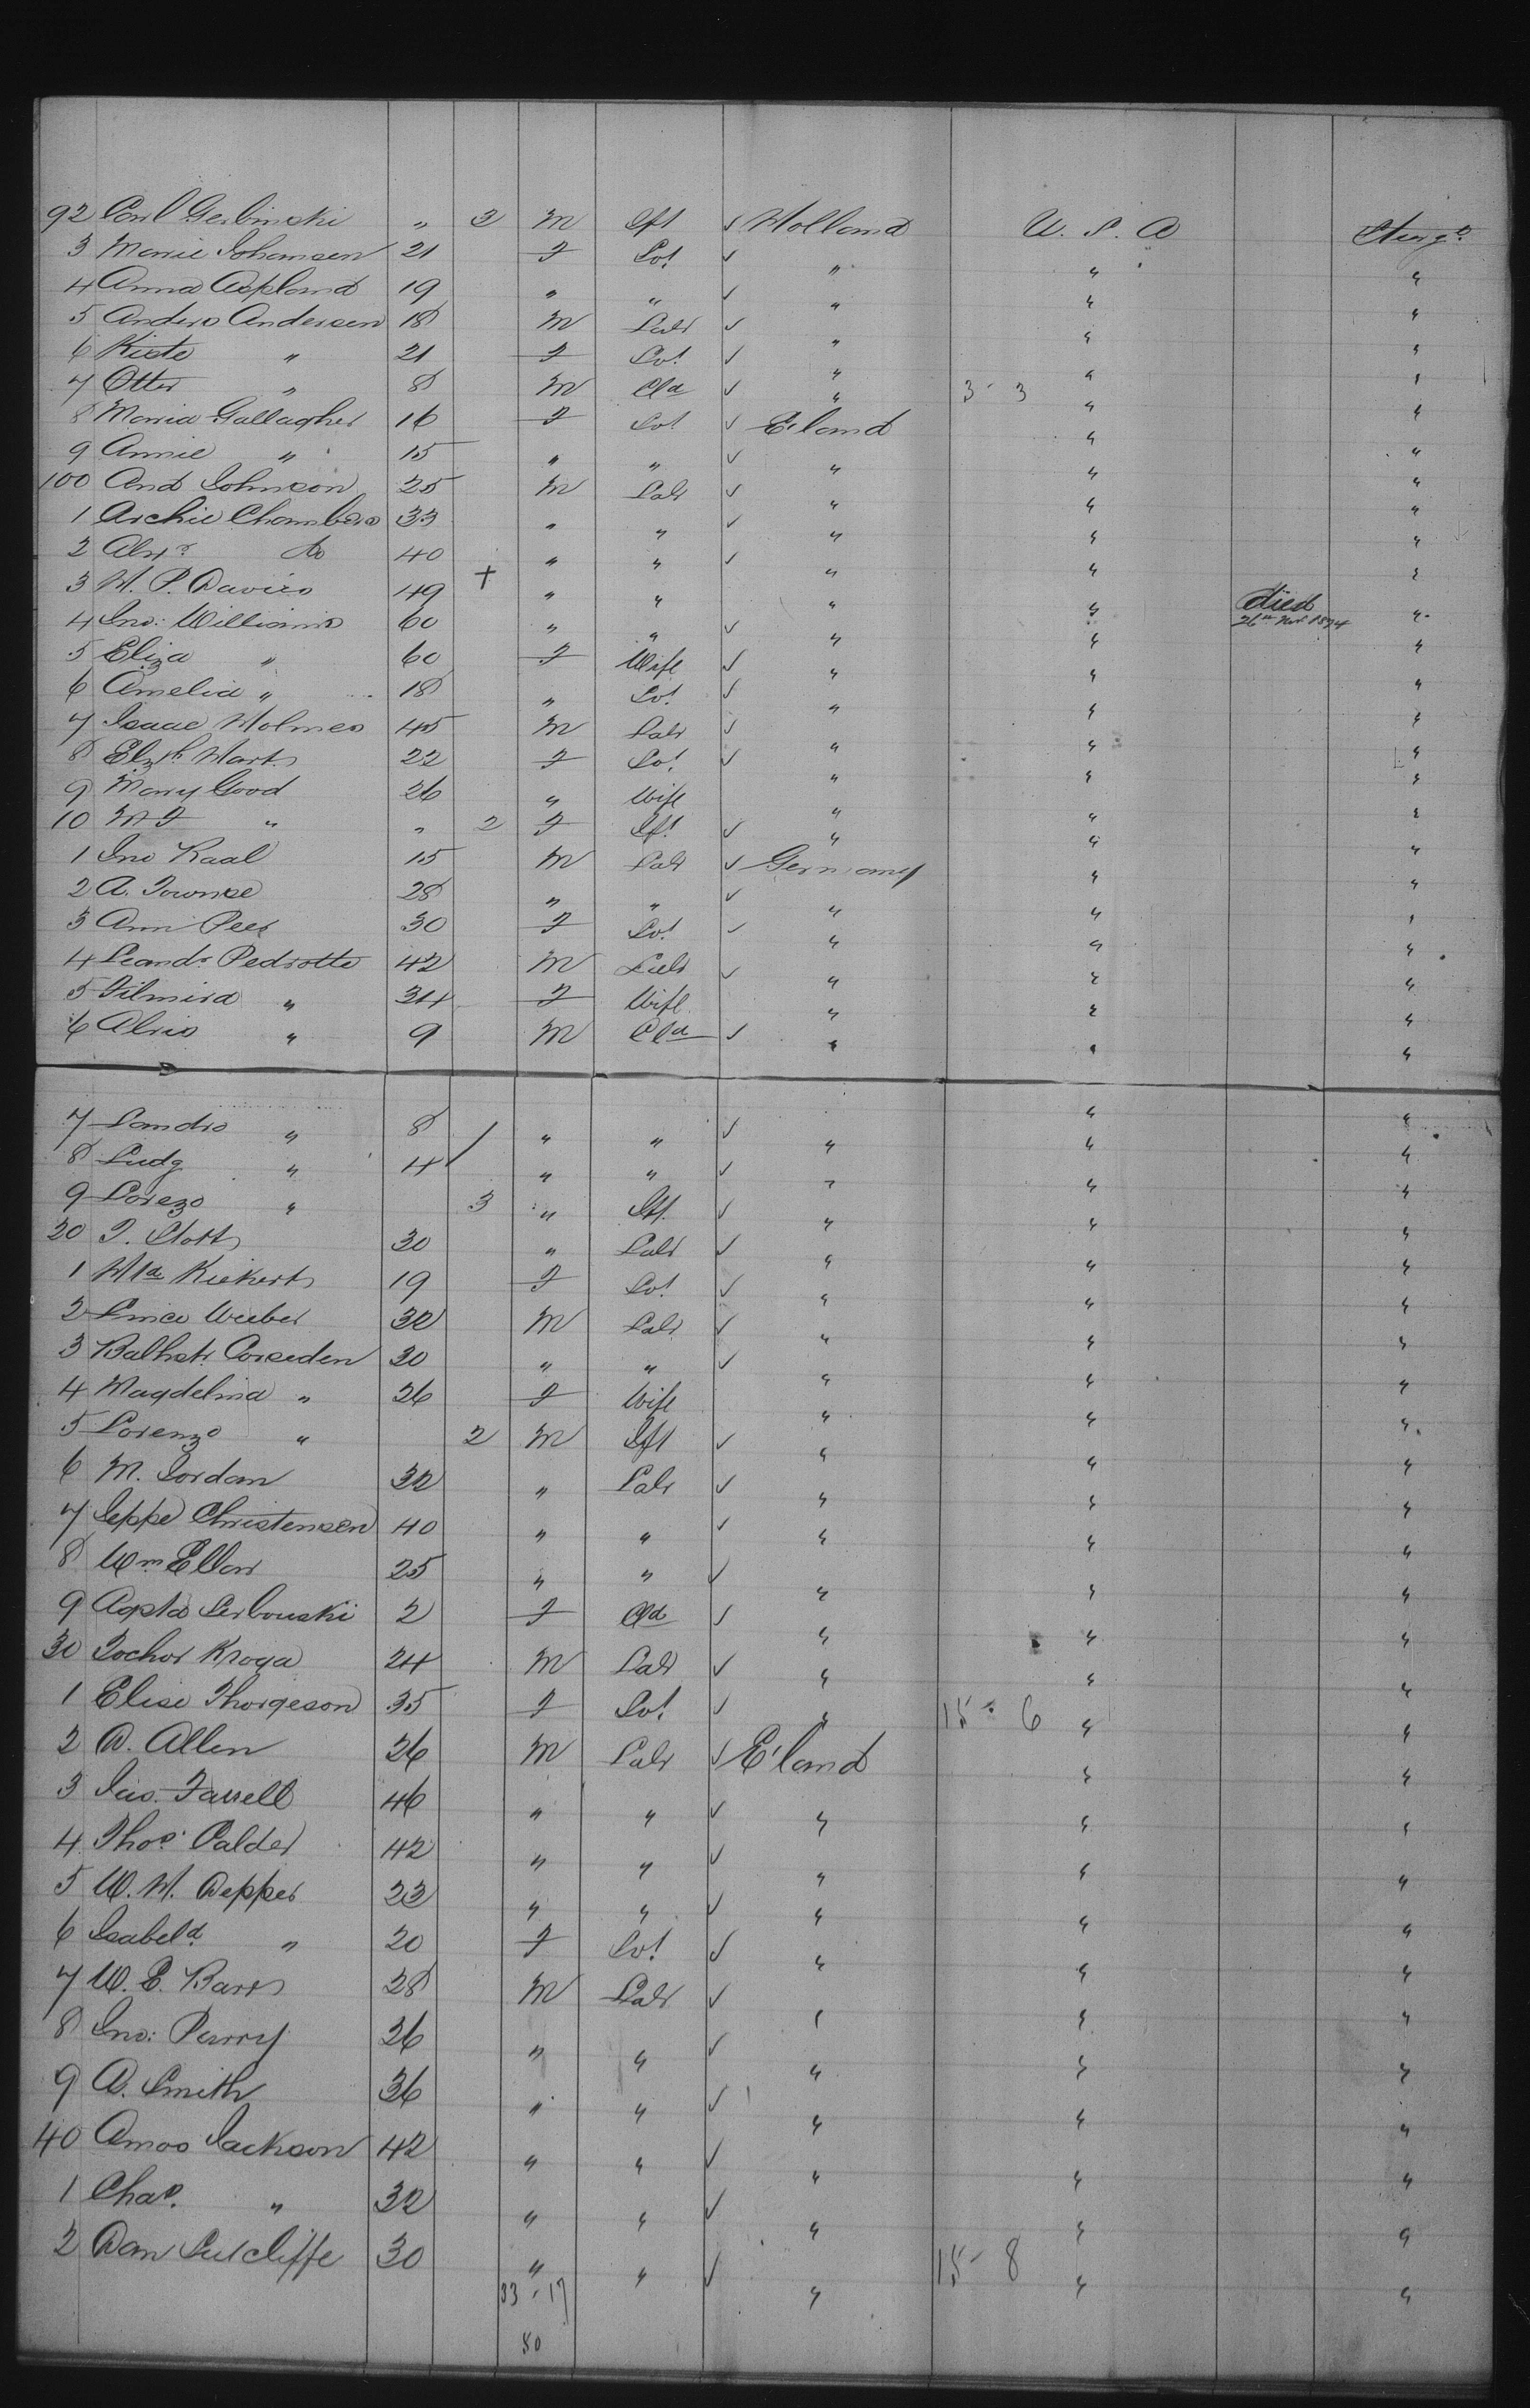 92 Carl Gerbinski " 3 M Ift ✓ Holland U. S. A Sterge
3 Marie Johansen 21 F Sot ✓ " " "
4 Anna Aspland 19 " " ✓ " " "
5 Anders Andersen 18 M Labr ✓ " " "
6 Kiste " 21 F Sot ✓ " " "
7 Otter " 8 M Cld ✓ " 3 - 3 " "
8 Maria Gallagher 16 F Sot ✓ E'land " "
9 Annie " 15 " " ✓ " " "
100 And Johnson 25 M Labr ✓ " " "
1 Archie Chambers 33 " " ✓ " " "
2 Alexr do 40 " " ✓ " " "
3 W. P. Davies 49 + " " " " died 26th Nov 1894 "
4 Jno: Williams 60 " " ✓ " " "
5 Eliza " 60 F Wife ✓ " " "
6 Amelia " 18 " Sot ✓ " " "
7 Isaac Holmes 45 M Labr ✓ " " "
8 Elzth Hart 22 F Sot ✓ " " "
9 Mary Good 26 " Wife " " "
10 M F " " 2 F Ift ✓ " " "
1 Jno Kaal 15 M Labr ✓ Germany " "
2 A. Townse 28 " " ✓ " " "
3 Ann Peer 30 F Sot ✓ " " "
4 Leandr Pedrotte 42 M Labr ✓ " " "
5 Filmira " 34 F Wife " " "
6 Alrio " 9 M Cld ✓ " " "
7 Landro " 8 " " ✓ " " "
8 Ludg " 4 " " ✓ " " "
9 Lorezo " 3 " Ift ✓ " " "
20 J. Stott 30 " Labr ✓ " " "
1 Kiekert 19 F Sot ✓ " " "
2 Weeber 32 M Labr ✓ " " "
3 Balhstr Corseden 30 " " ✓ " " "
4 Magdelina " 26 F Wife " " "
5 Lorenzo " 2 M Ift ✓ " " "
6 M. Jordan 32 " Labr ✓ " " "
7 Jeppe Christensen 40 " " ✓ " " "
8 Wm Ellor 25 " " ✓ " " "
9 Agsta Serbouski 2 F Cld ✓ " " "
30 Tochor Kroga 24 M Labr ✓ " " "
1 Elise Thorgeson 35 F Sot ✓ " 15 - 6 " "
2 D. Allen 26 M Labr ✓ E'land " "
3 Jas. Farrell 46 " " ✓ " " "
4 Thos. Calder 42 " " ✓ " " "
5 W. H. Depper 23 " " ✓ " " "
6 Isabela " 20 F Sot ✓ " " "
7 W. E. Barr 28 M Labr ✓ " " "
8 Jno: Perry 26 " " ✓ " " "
9 D. Smith 36 " " ✓ " " "
40 Amos Jackson 42 " " ✓ " " "
1 Chas. " 32 " " ✓ " " "
2 Dan Sutcliffe 30 " " ✓ " 15 - 8 " "
33 - 17
50